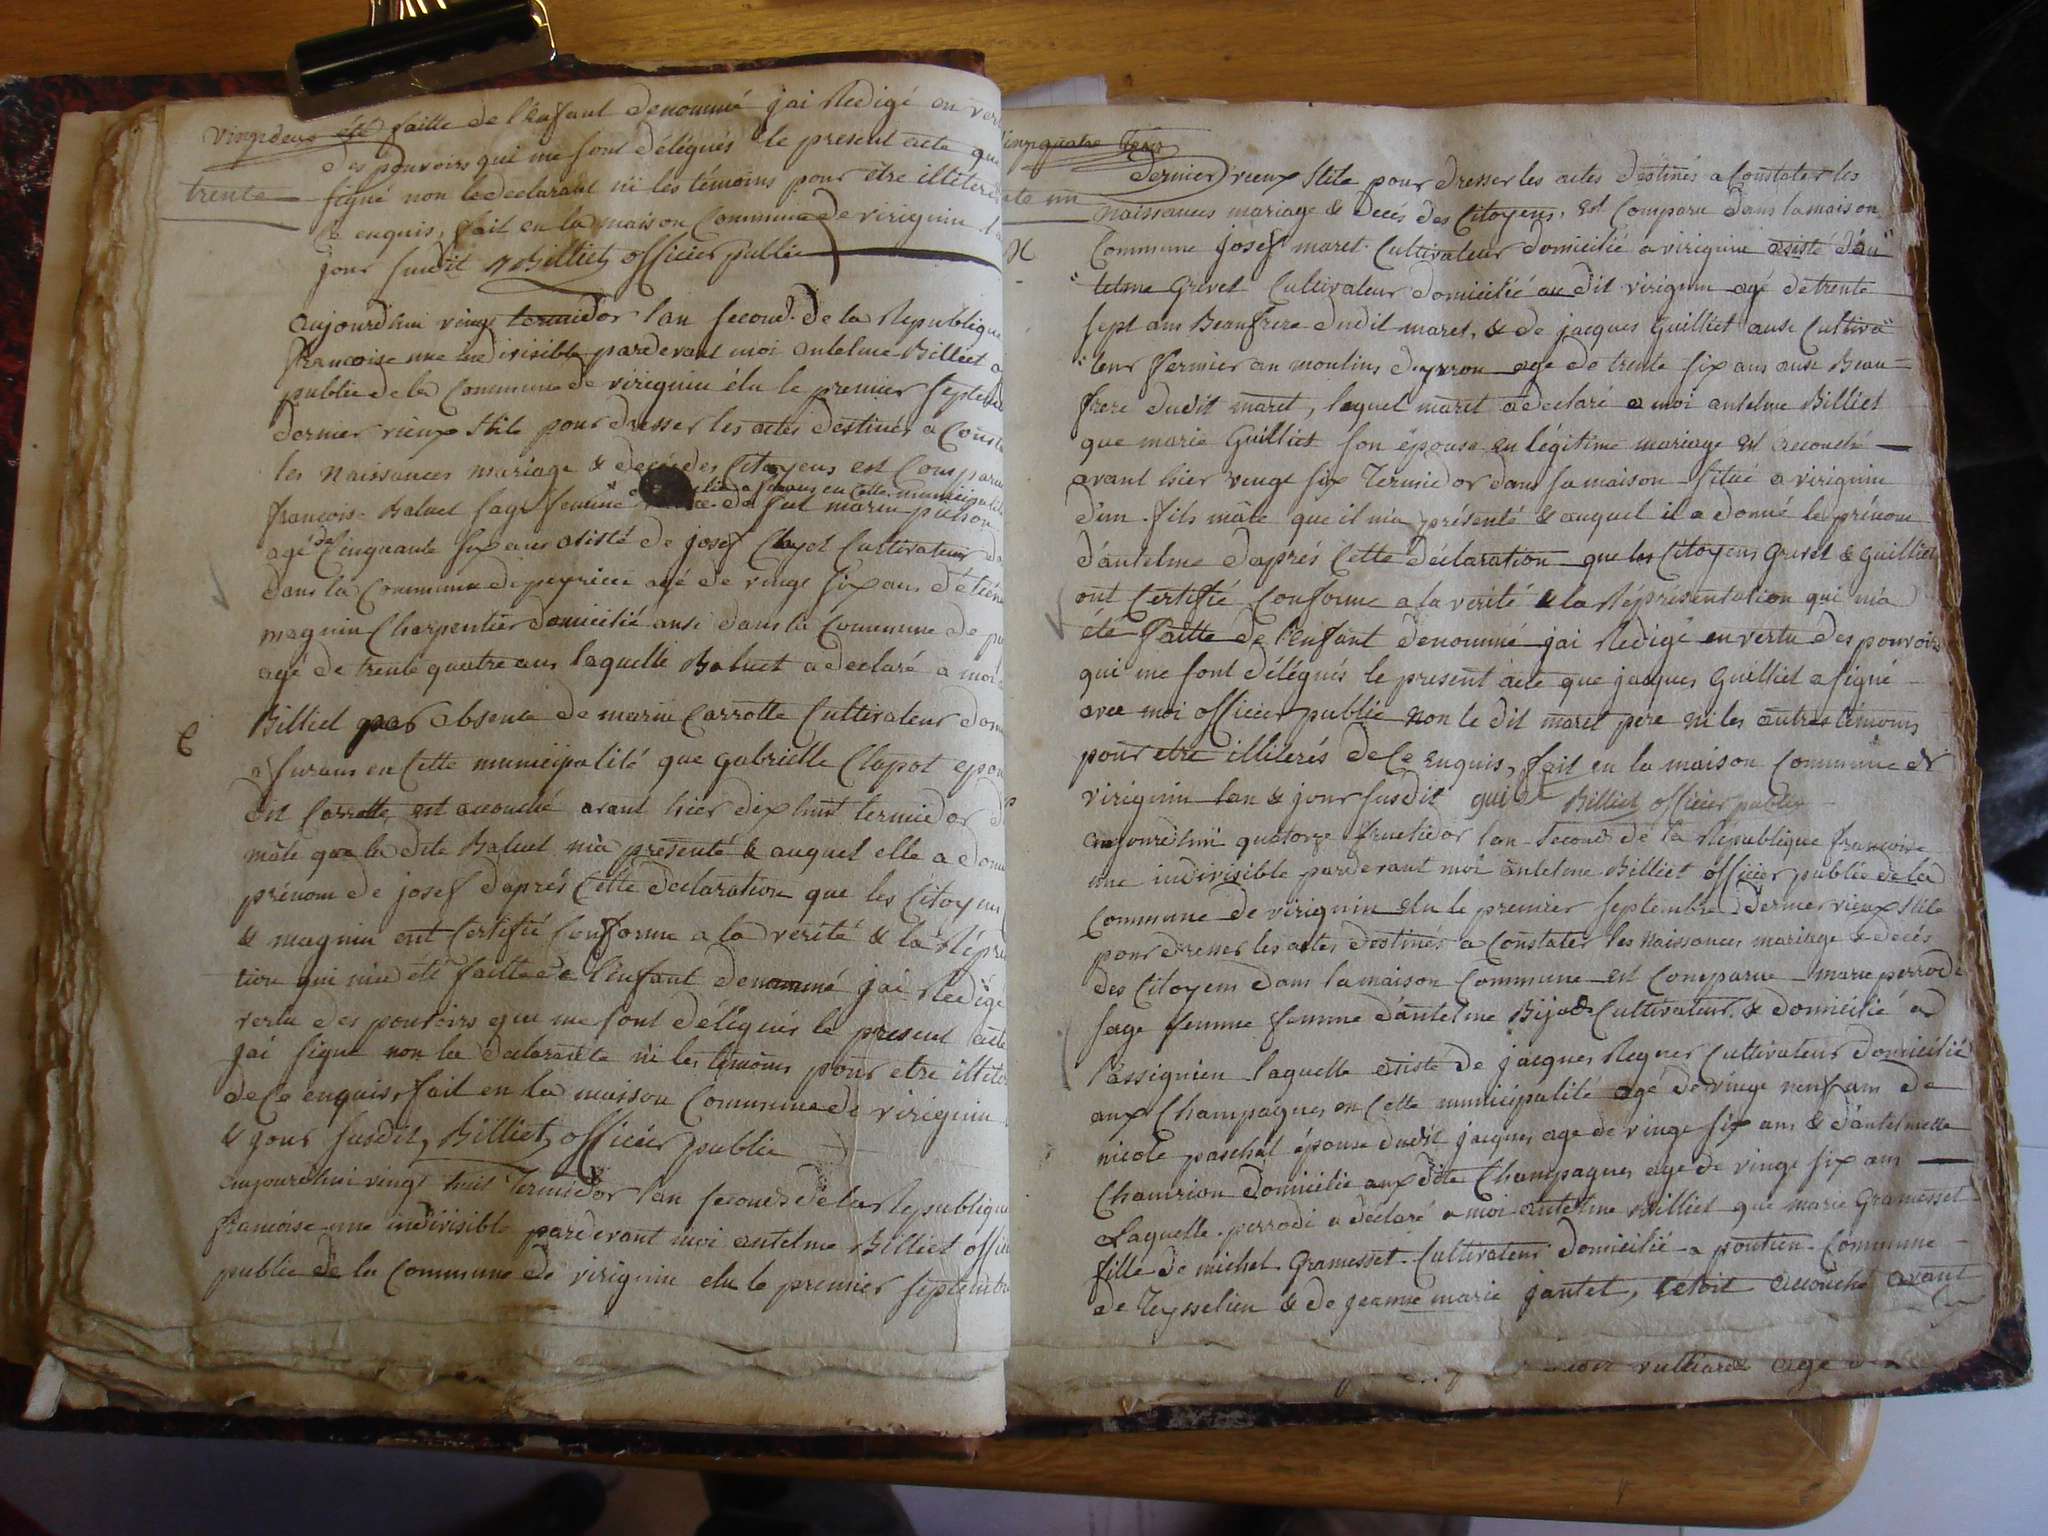 vingt deux été faitte de l'enfant denommé j'ai Redigé en ver
des pouvoirs qui me sont délégués le present acte que
trente
signé non le declarant ni les témoins pour être illiterés
Ce enquis, fait en la maison Commune de virignin
jour susdit Billiet officier public
aujourdhui vingt termidor lan second de la Republique
francoise une indivisible pardevant moi antelme Billiet
public de la Commune de virignin élu le premier septembre
dernier vieux stile pour dresser les actes destinés a Const
les naissances mariage & decés des Citoyens est Comparu
francoise Baluet sage femme a furans en cette municipalité de fut marin
agé de Cinquante six ans asisté de josef Clapot Cultivateur
dans la Commune de peyrieu agé de vingt six ans détiéne
magnin Charpentier domicilié ausi dans la Commune de
agé de trente quatre ans laquelle Baluet a declaré a moi
Billiet par absence de marin Carrotte Cultivateur dom
C
a furans en Cette municipalité que gabrielle Clapot epou
dit Carrotte est accouché avant hier dix huit termidor d
mâle que la dite Baluet m'a présenté & auquel elle a donné
prénom de josef d'aprés Cette declaration que les Citoyens
& magnin ont Certifié Conforme a la verité & la Répré
tion qui m'a été faitte de l'enfant denommé j'ai Redigé
vertu des pouvoirs que me sont délégués le present acte
jai signé non la declarante ni les témoins pour etre illiter
de Ce enquis, fait en la maison Commune de virignin
& jour susdit, Billiet, officier public
aujourdhui vingt huit Termidor lan second de la Republique
francoise une indivisible pardevant moi antelme Billiet offici
public de la Commune de virignin elu le premier septembre
vingt quatre
te un
dernier vieux stile pour dresser les actes destinés a Constater les
naissances mariage & decés des Citoyens, est Comparu dans la maison
Commune josef maret Cultivateur domicilié a virignin asisté d'an"
"telme Grivet Cultivateur domicilié au dit virignin agé de trente
sept ans Beaufrere dudit maret, & de jacques Guilliet ausi Cultiva"
"teur fermier au moulins agé de trente six ans ausi Beau=
frere dudit maret, lequel maret a declaré a moi antelme Billiet
que marie Guilliet son épouse en légitime mariage est accouché
avant hier vingt six Termidor dans sa maison situé a virignin
d'un fils mâle que il m'a présenté & auquel il a donné le prénom
d'antelme d'aprés Cette déclaration que les Citoyens Grivet & Guilliet
ont Certifié Conforme a la verité & la Réprésentation qui m'a
été faitte de l'enfant denommé jai Redigé en vertu des pouvoirs
qui me sont délégués le present acte que jacques Guilliet a signé
avec moi officier public non le dit maret pere ni les autres témoins
pour etre illiterés de Ce enquis, fait en la maison Commune de
virignin lan & jour susdit Billiet officier public
aujourdhui quatorze fructidor lan second de la Republique francoise
une indivisible pardevant moi antelme Billiet officier public de la
Commune de virignin elu le premier septembre dernier vieux stile
pour dresser les actes destinés a Constater les naissances mariage & decés
des Citoyens dans la maison Commune est Comparue marie perrodi
sage femme femme d'antelme Cultivateur & domicilié a
lassignieu laquelle asisté de jacques Cultivateur domicilié
aux Champagnes en Cette municipalité agé de vingt neuf ans de
nicole paschal épouse dudit jacques age de vinge six ans & d'antelmette
Chamion domicilie aux dite Champagnes agé de vingt six ans
Laquelle perrodi a déclaré a moi antelme Billiet que marie Gramesset
fille de michel Gramesset Cultivateur domicilié a poutieu Commune
de Teysselieu & de jeanne marie jantet, s'étoit accouché avant
age